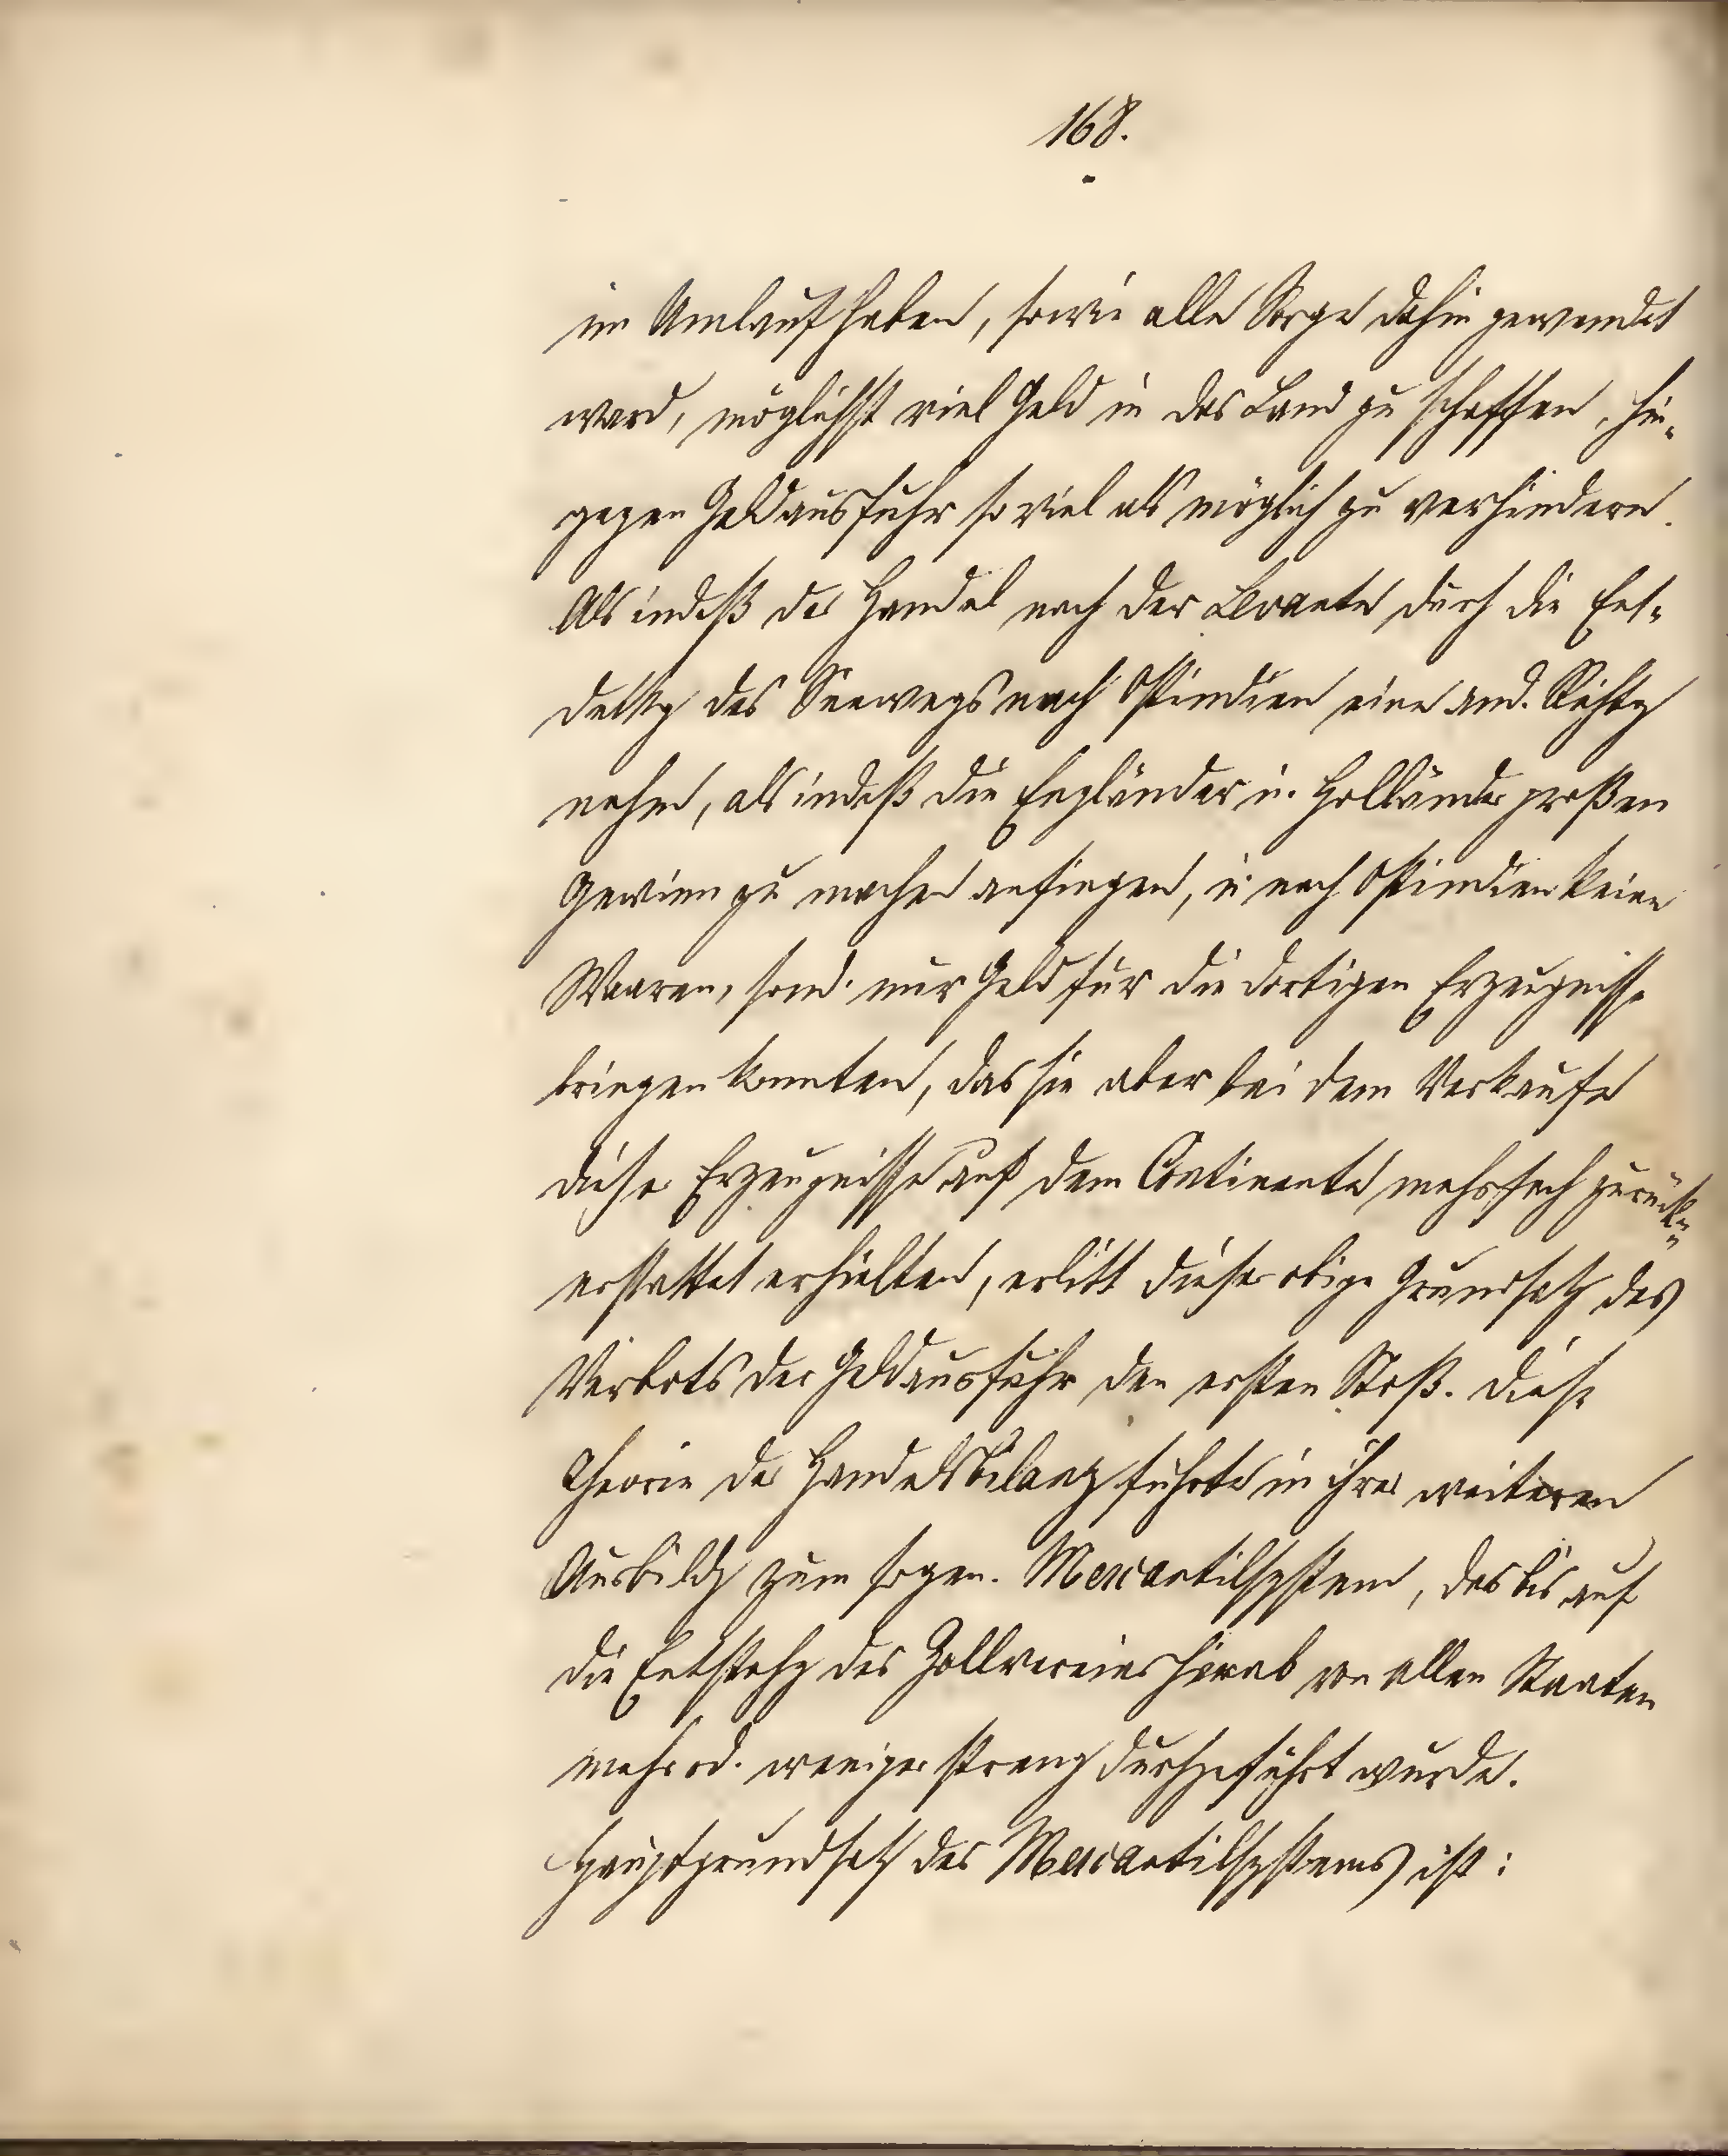 168.
im Umlauf haben, sowie alle Sorge dahin gewendet
ward, möglichst viel Geld in das Land zu schaffen, hin-
gegen Geldausfuhr so viel als möglich zu verhindern.
Als indeß der Handel nach der Levante durch die Ent-
deckg des Seewegs nach Ostindien eine and. Richtg
nahm, als indeß die Engländer u. Holländer großen
Gewinn zu machen anfingen, u. nach Ostindien keine
Waaren, sond. nur Geld für die dortigen Erzeugnisse
bringen konnten, das sie aber bei dem Verkaufe
dieser Erzeugnisse auf dem Continente mehrfach zurück-
erstattet erhielten, erlitt dieser obige Grundsatz des
Verbots der Geldausfuhr den ersten Stoß. Diese
Theorie der Handelsbilanz führte in ihrer weiteren
Ausbildg zum sogen. Mercantilsystem, das bis auf
die Entstehg des Zollvereins herab von allen Staaten
mehr od. weniger streng durchgeführt wurde.
Hauptgrundsatz des Mercantilsystems ist: